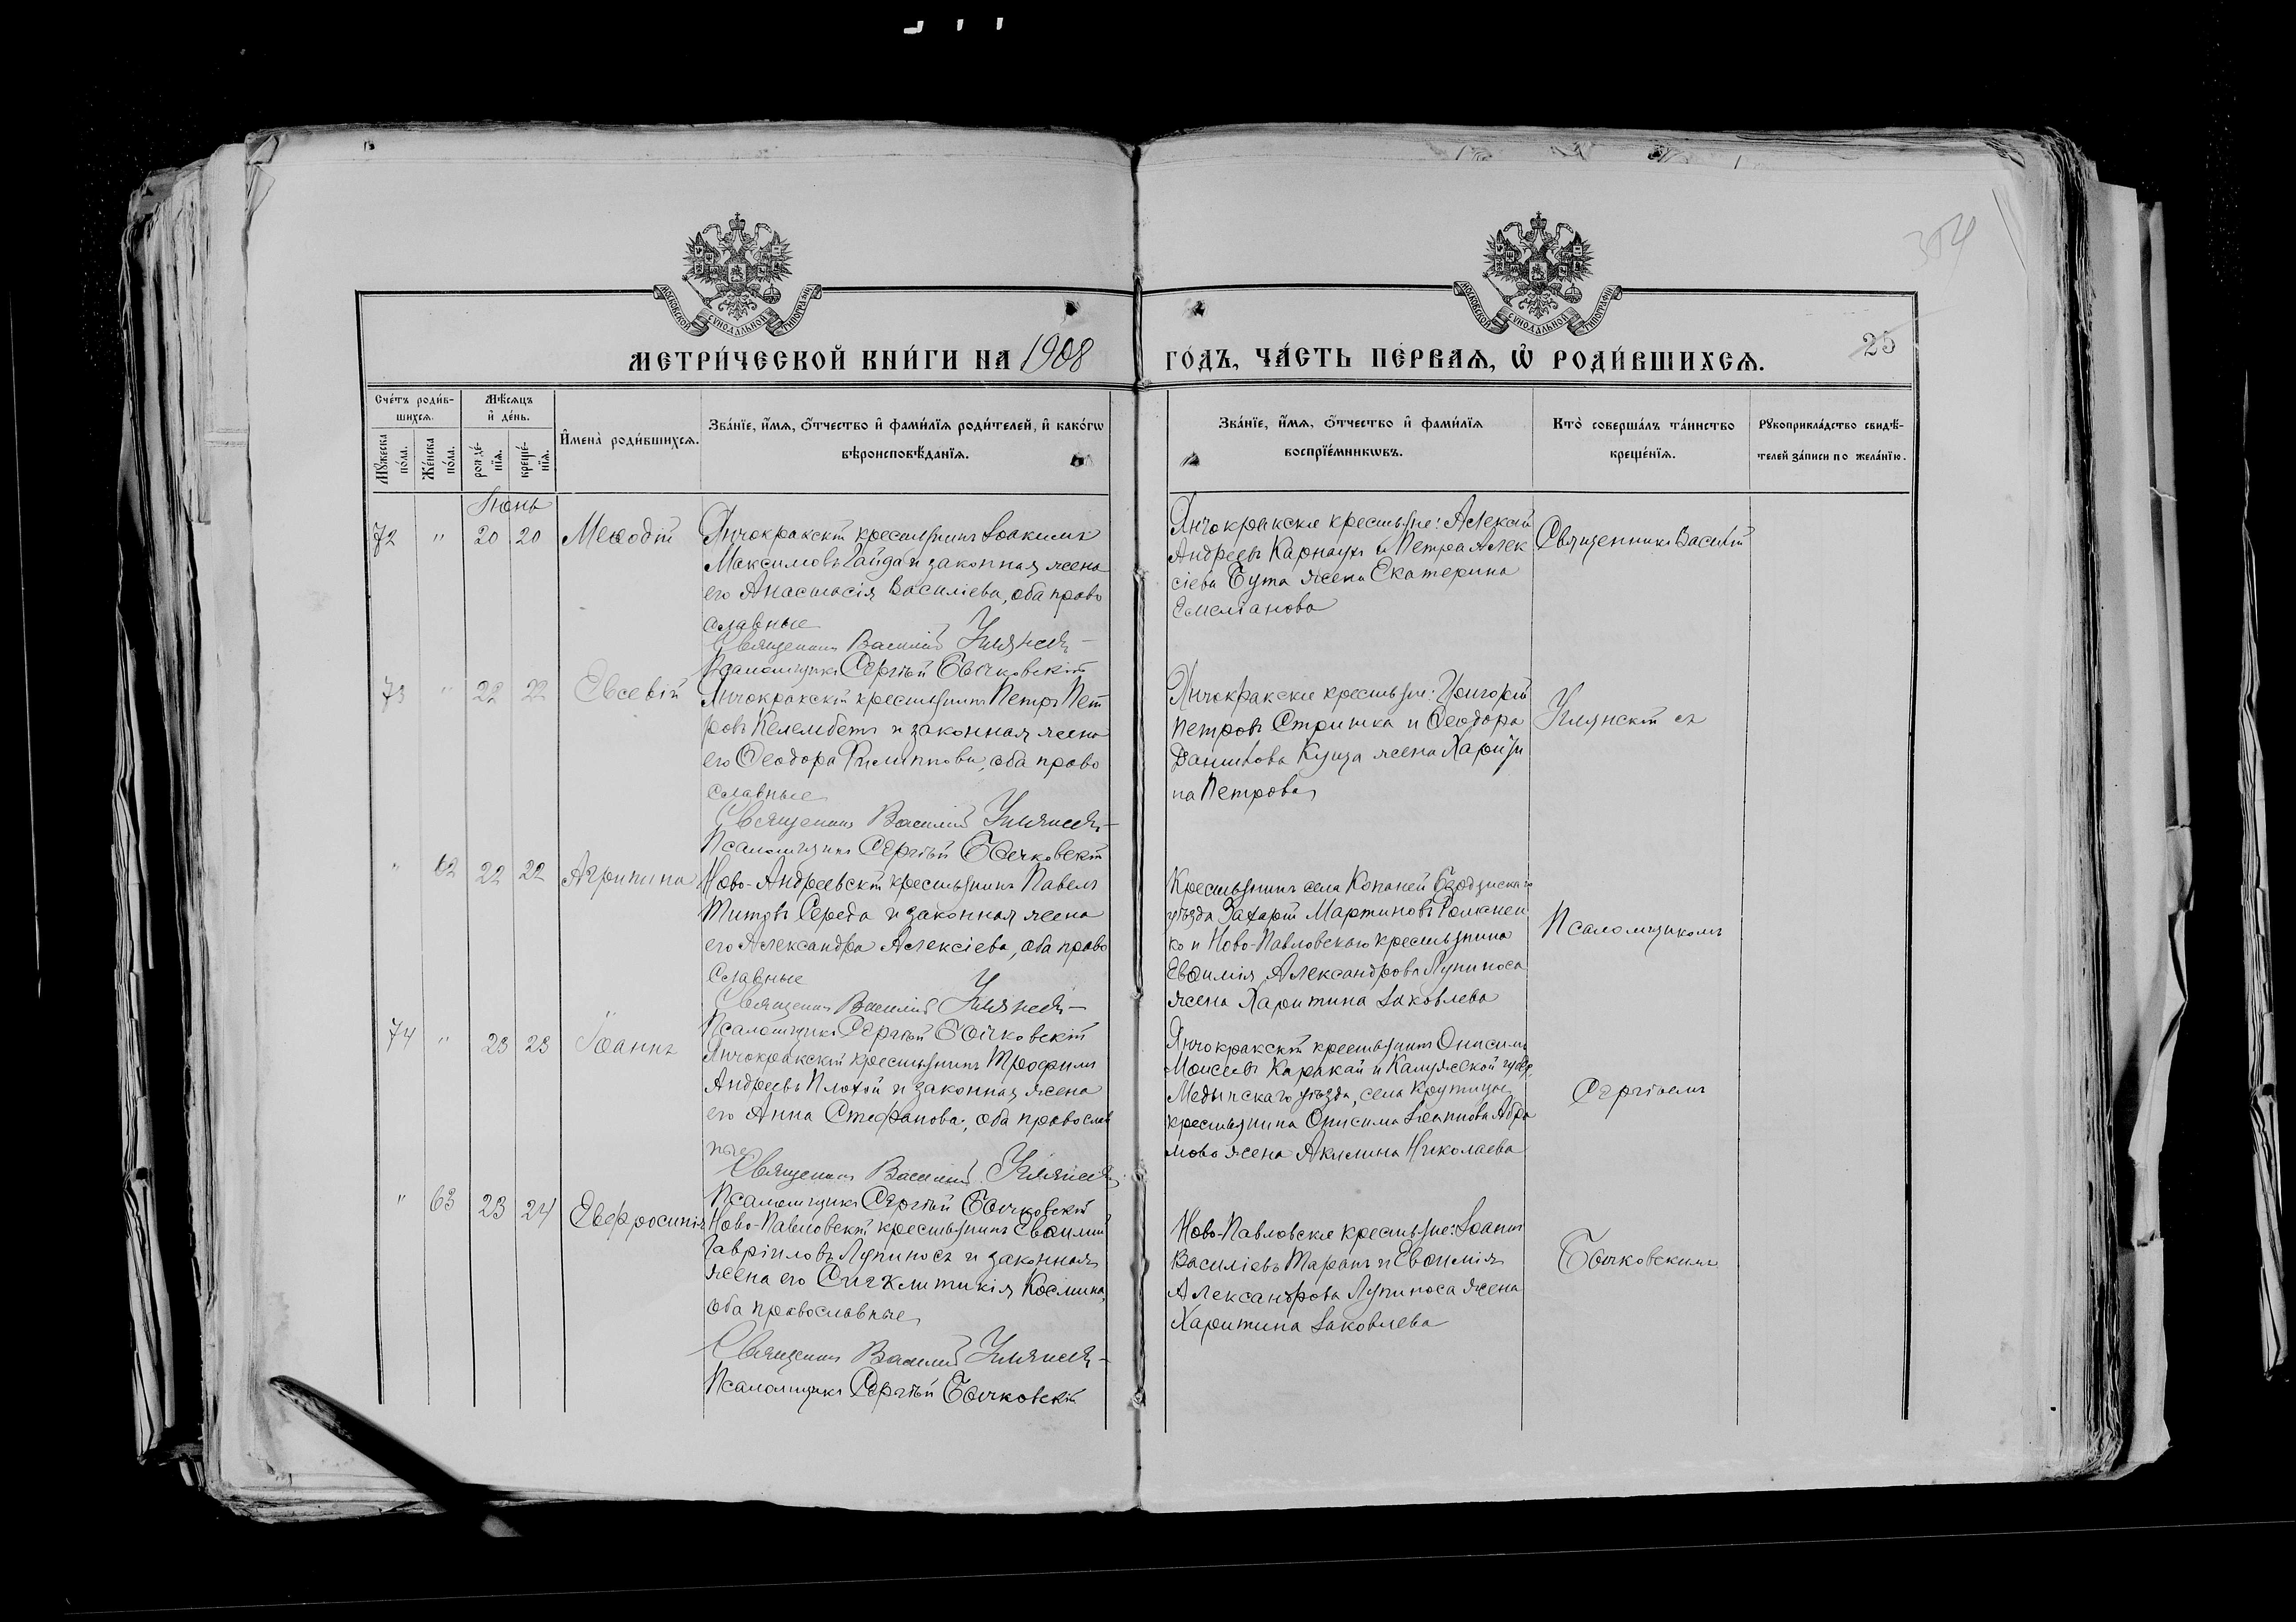 МОСКОВСКОЙ СѴНОДАЛЬНОЙ ТИПОГРАФІИ
МОСКОВСКОЙ СѴНОДАЛЬНОЙ ТИПОГРАФІИ
25
МЕТРИ́ЧЕСКОЙ КНИ́ГИ НА 1908
ГО́ДЪ, ЧА́СТЬ ПЕ́РВАЯ, Ѡ҆ РОДИ́ВШИХСЯ.
Сче́тъ роди́в-
шихся.
Мꙋ́жеска по́ла.
Же́нска по́ла.
Мѣ́сяцъ
и҆ де́нь.
рожде́-нїя.
креще́-нїя.
И҆мена̀ роди́вшихся.
Зва́нїе, и҆́мя, ѻ҆́тчество и҆ фами́лїя роди́телей, и҆ како́гѡ
вѣроисповѣ́данїя.
Зва́нїе, и҆́мя, ѻ҆́тчество и҆ фами́лїя
воспрїе́мникѡвъ.
Кто̀ соверша́лъ та́инство
креще́нїя.
Рꙋкоприкла́дство свидѣ́-
телей за́писи по жела́нїю.
Іюнь
72 " 20 20 Меѳодій
Янчокракскій крестьянинъ Іоакимъ
Максимовъ Гайда и законная жена
его Анастасія Василіева, оба право
славные
Священникъ Василій
Псаломщикъ Сергѣй Бычковскій
Янчокракскіе крестьяне: Алексій
Андреевъ Карнаухъ и Петра Алек
сіева Бута жена Екатерина
Емеліанова
Священникъ Василій
73 " 22 22 Евсевій
Янчокракскій крестьянинъ Петръ Пет
ровъ Келембетъ и законная жена
его Ѳеодора Филиппова, оба право
славные
Священникъ Василій
Псаломщикъ Сергѣй Бычковскій
Янчокракскіе крестьяне: Григорій
Петровъ Стришка и Ѳеодора
Данилова жена Харити
на Петрова
съ
" 62 22 22 Агрипина
Ново-Андреевскій крестьянинъ Павелъ
Титовъ Середа и законная жена
его Александра Алексіева, оба право
славные
Священникъ Василій
Псаломщикъ Сергѣй Бычковскій
Крестьянинъ села Копаней
уѣзда Захарій Мартиновъ Романен
ко и Ново-Павловскаго крестьянина
Евѳимія Александрова Лупиноса
жена Харитина Іаковлева
Псаломщикомъ
74 " 23 23 Іоаннъ
Янчокракскій крестьянинъ Трофимъ
Андреевъ Плохой и законная жена
его Анна Стефанова, оба православ
ные
Священникъ Василій
Псаломщикъ Сергѣй Бычковскій
Янчокракскій крестьянинъ Онисимъ
Моисеевъ Каракай и Калужской губер.
Медынскаго уѣзда, села Крутицы
крестьянина Онисима Іоаннова Абра
мова жена Акилина Николаева
Сергіемъ
" 63 23 24 Евфросинія
Ново-Павловскій крестьянинъ Евѳимій
Гавріиловъ Лупиносъ и законная
жена его Сигклитикія Косьмина,
оба православные
Священникъ Василій
Псаломщикъ Сергѣй Бычковскій
Ново-Павловскіе крестьяне: Іоаннъ
Василіевъ Таранъ и Евѳимія
Александрова Лупиноса жена
Харитина Іаковлева
Бычковскимъ